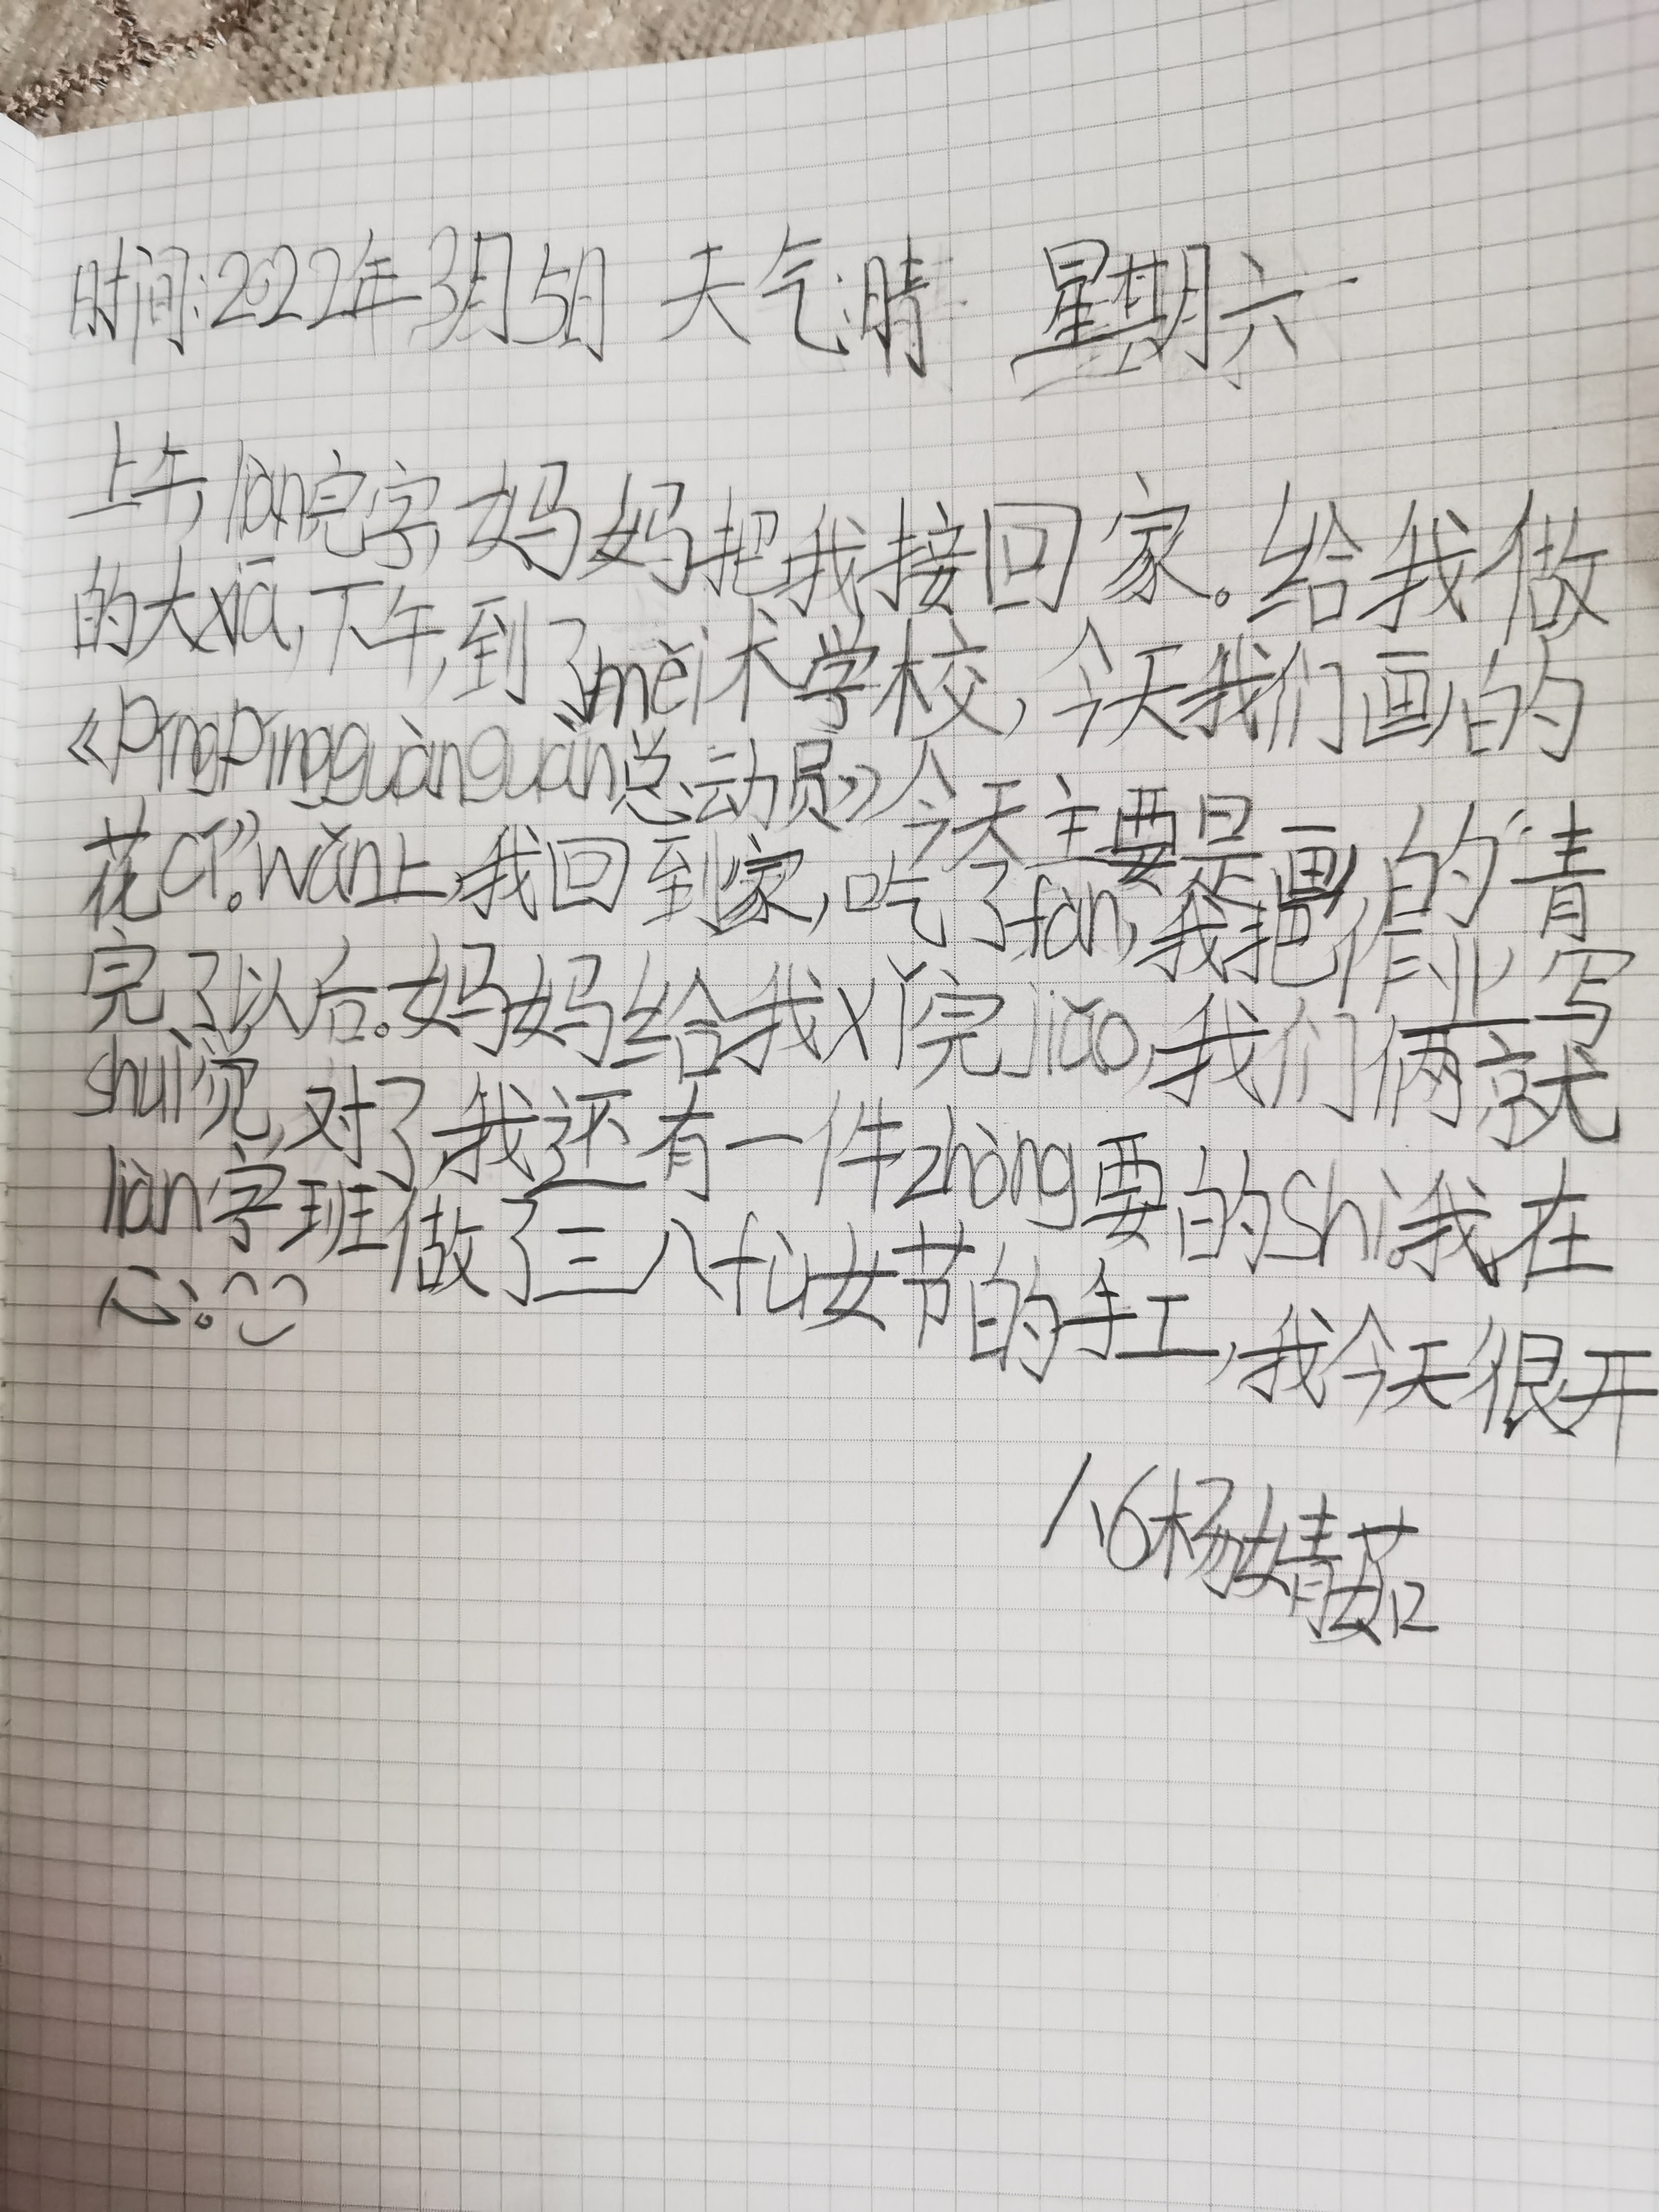 时间:2022年3月5日 天气:晴 星期六
上午,làn完字,妈妈把我接回家。给我做
的大xiā,下午,到了měi术学校,今天我们画的
《píngpíngguànguàn总动员》今天主要是画的“青
花cí”。wǎn上,我回到家,吃了fàn,我把作业写
完了以后。妈妈给我xǐ完jiǎo,我们俩就
shuì觉,对了我还有一件zhòng要的shì。我在
liàn字班做了三八fù女节的手工,我今天很开
心。
1、6杨婧茹